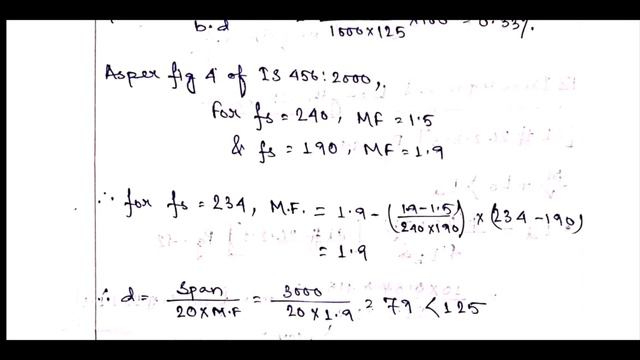 b.d 1000×125 ×100 = 0.33%.
As per fig 4 of IS 456:2000,
for fs = 240, MF = 1.5
& fs = 190, MF = 1.9
∴ for fs = 234, M.F. = 1.9 - (1.9-1.5 / 240×190) × (234-190)
= 1.9
∴ d = Span / 20×M.F = 3000 / 20×1.9 = 79 < 125